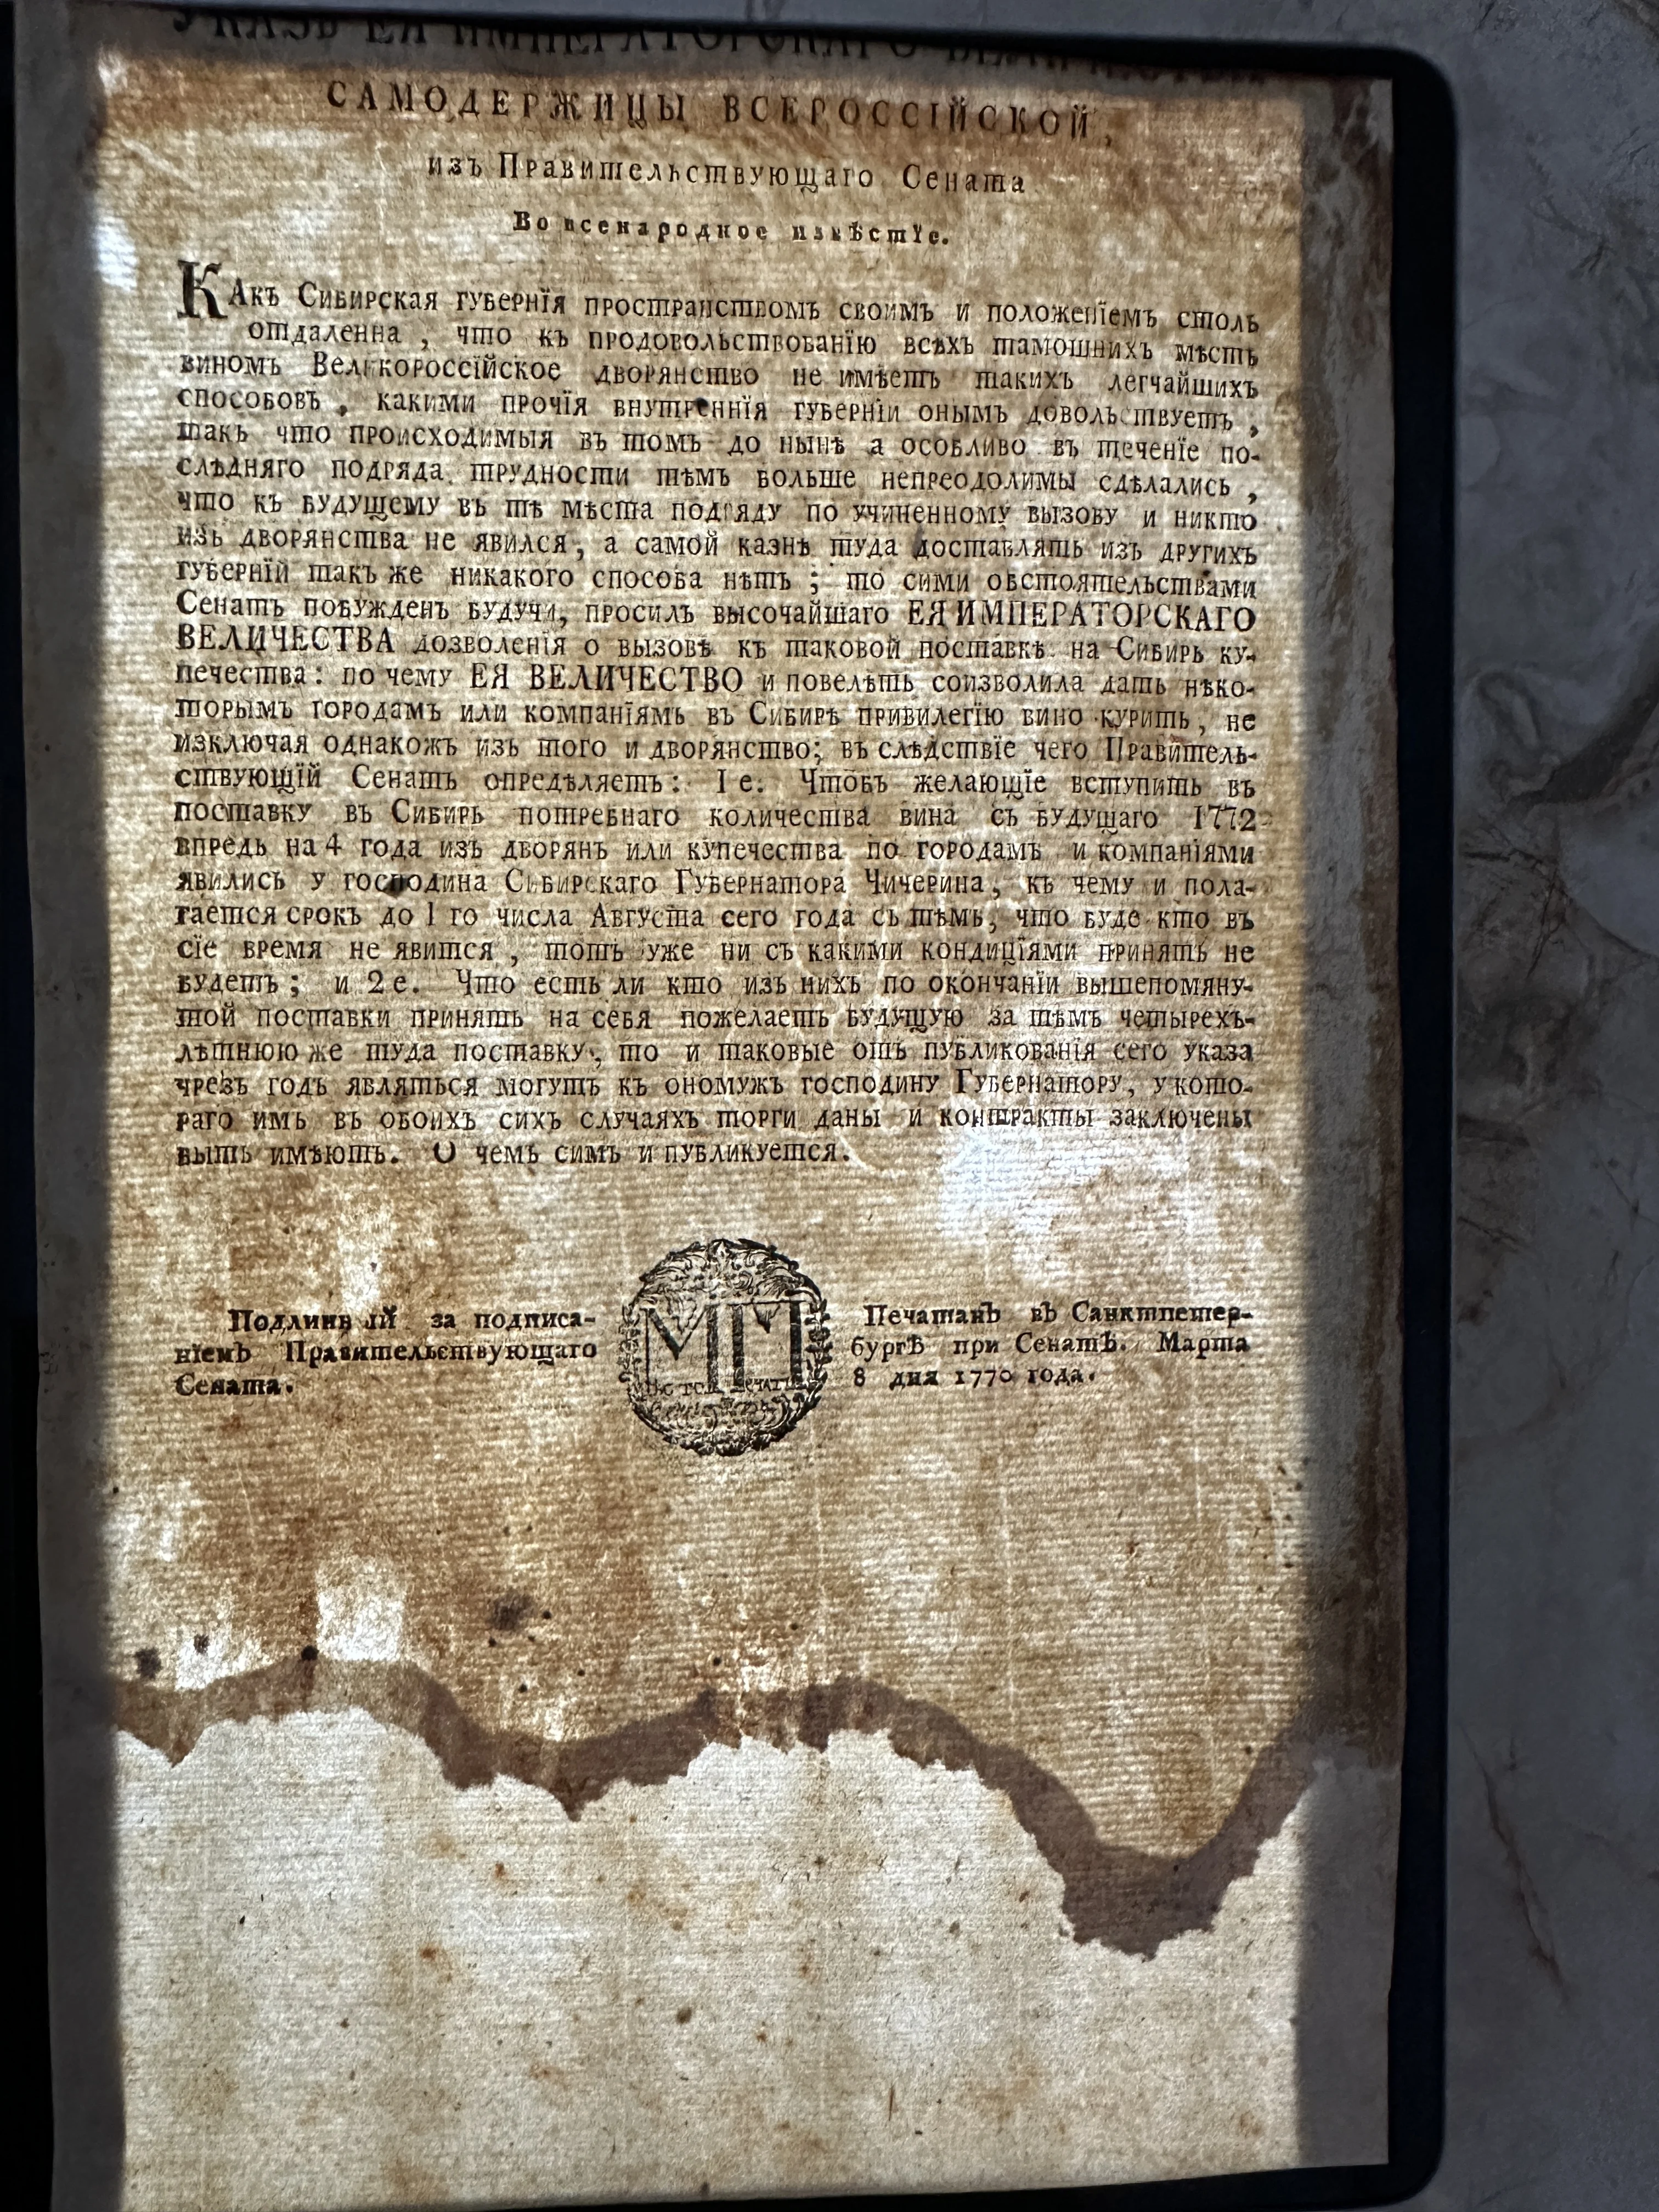 УКАЗЪ ЕЯ ИМПЕРАТОРСКАГО ВЕЛИЧЕСТВА
САМОДЕРЖИЦЫ ВСЕРОССІЙСКОЙ,
изъ Правительствующаго Сената
Во всенародное извѣстїе.
КАкъ Сибирская губернїя пространствомъ своимъ и положенїемъ столь
отдаленна , что къ продовольствованїю всѣхъ тамошнихъ мѣстъ
виномъ Великороссїйское дворянство не имѣетъ такихъ легчайшихъ
способовъ , какими прочїя внутреннїя губернїи онымъ довольствуетъ ,
такъ что происходимыя въ томъ до нынѣ а особливо въ теченїе по-
слѣдняго подряда трудности тѣмъ больше непреодолимы сдѣлались ,
что къ будущему въ тѣ мѣста подряду по учиненному вызову и никто
изъ дворянства не явился , а самой казнѣ туда доставлять изъ другихъ
губернїй такъ же никакого способа нѣтъ ; то сими обстоятельствами
Сенатъ побужденъ будучи, просилъ высочайшаго ЕЯ ИМПЕРАТОРСКАГО
ВЕЛИЧЕСТВА дозволенїя о вызовѣ къ таковой поставкѣ на Сибирь ку-
печества: по чему ЕЯ ВЕЛИЧЕСТВО и повелѣть соизволила дать нѣко-
торымъ городамъ или компанїямъ въ Сибирѣ привилегїю вино курить , не
изключая однакожъ изъ того и дворянство; въ слѣдствїе чего Правитель-
ствующїй Сенатъ опредѣляетъ: 1 е. Чтобъ желающїе вступить въ
поставку въ Сибирь потребнаго количества вина съ будущаго 1772
впредь на 4 года изъ дворянъ или купечества по городамъ и компанїями
явились у господина Сибирскаго Губернатора Чичерина , къ чему и пола-
гается срокъ до 1 го числа Августа сего года съ тѣмъ, что буде кто въ
сїе время не явится , тотъ уже ни съ какими кондицїями принятъ не
будетъ ; и 2 е. Что есть ли кто изъ нихъ по окончанїи вышепомяну-
той поставки принять на себя пожелаетъ будущую за тѣмъ четырехъ-
лѣтнюю же туда поставку , то и таковые отъ публикованїя сего указа
чрезъ годъ являться могутъ къ ономужъ господину Губернатору, у кото-
раго имъ въ обоихъ сихъ случаяхъ торги даны и контракты заключены
быть имѣютъ. О чемъ симъ и публикуется.
Подлинный за подписа-
нїемъ Правительствующаго
Сената.
МП
Печатанъ въ Санктпетер-
бургѣ при Сенатѣ. Марта
8 дня 1770 года.